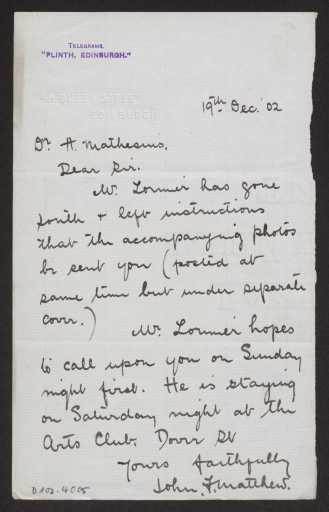 TELEGRAMS.
"PLINTH, EDINBURGH."
19th Dec. '02
Dr. H. Mathesius,
Dear Sir.
Mr. Lorimer has gone
south + left instructions
that the accompanying photos
be sent you (posted at
same time but under separate
covr.)
Mr. Lorimer hopes
to call upon you on Sunday
night first. He is staying
on Saturday night at the
Arts Club. Dovr St
Yours faithfully
John. F. Matthew.
D102-4005